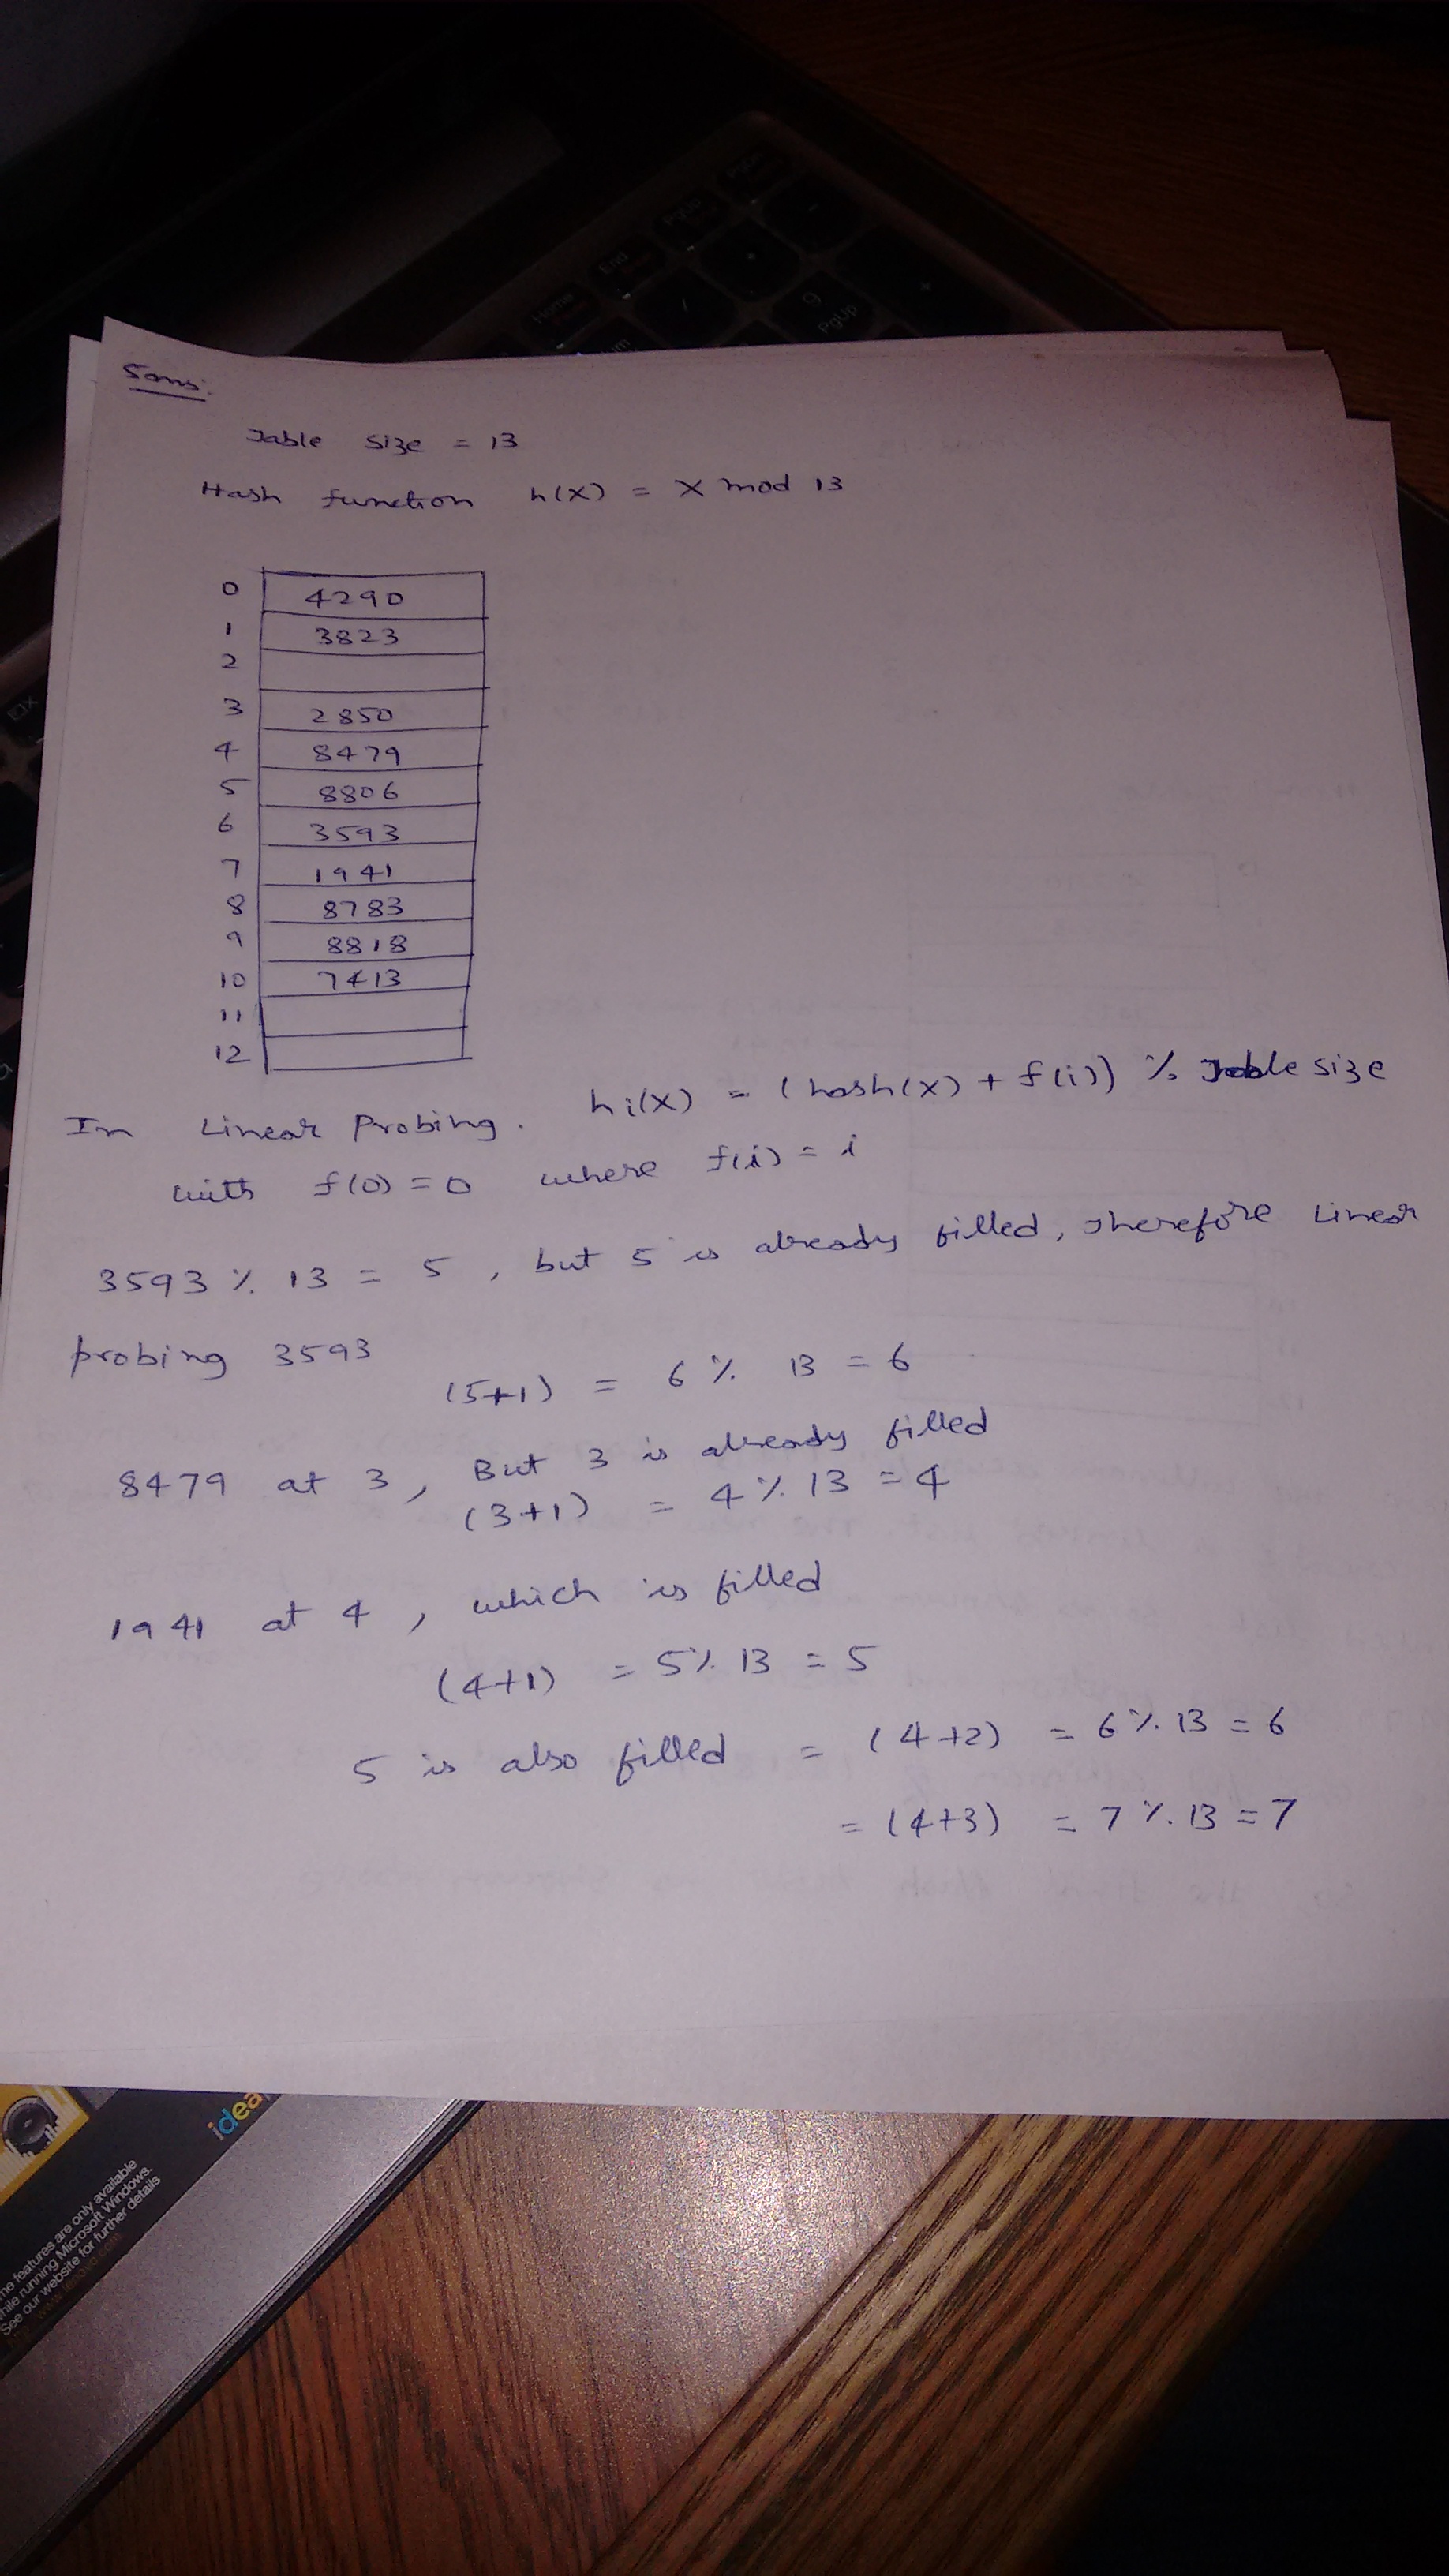 Solns:
Table size = 13
Hash function h(X) = X mod 13
0 4290
1 3823
2
3 2850
4 8479
5 8806
6 3593
7 1941
8 8783
9 8818
10 7413
11
12
In Linear Probing. hi(X) = (hash(X) + f(i)) % Table size
with f(0) = 0 where f(i) = i
3593 % 13 = 5, but 5 is already filled, therefore Linear
probing 3593
(5+1) = 6 % 13 = 6
8479 at 3, But 3 is already filled
(3+1) = 4 % 13 = 4
1941 at 4, which is filled
(4+1) = 5 % 13 = 5
5 is also filled = (4+2) = 6 % 13 = 6
= (4+3) = 7 % 13 = 7
Home
End
PgUp
9
PgUp
/
+
-
idea
features are only available
while running Microsoft Windows.
See our website for further details